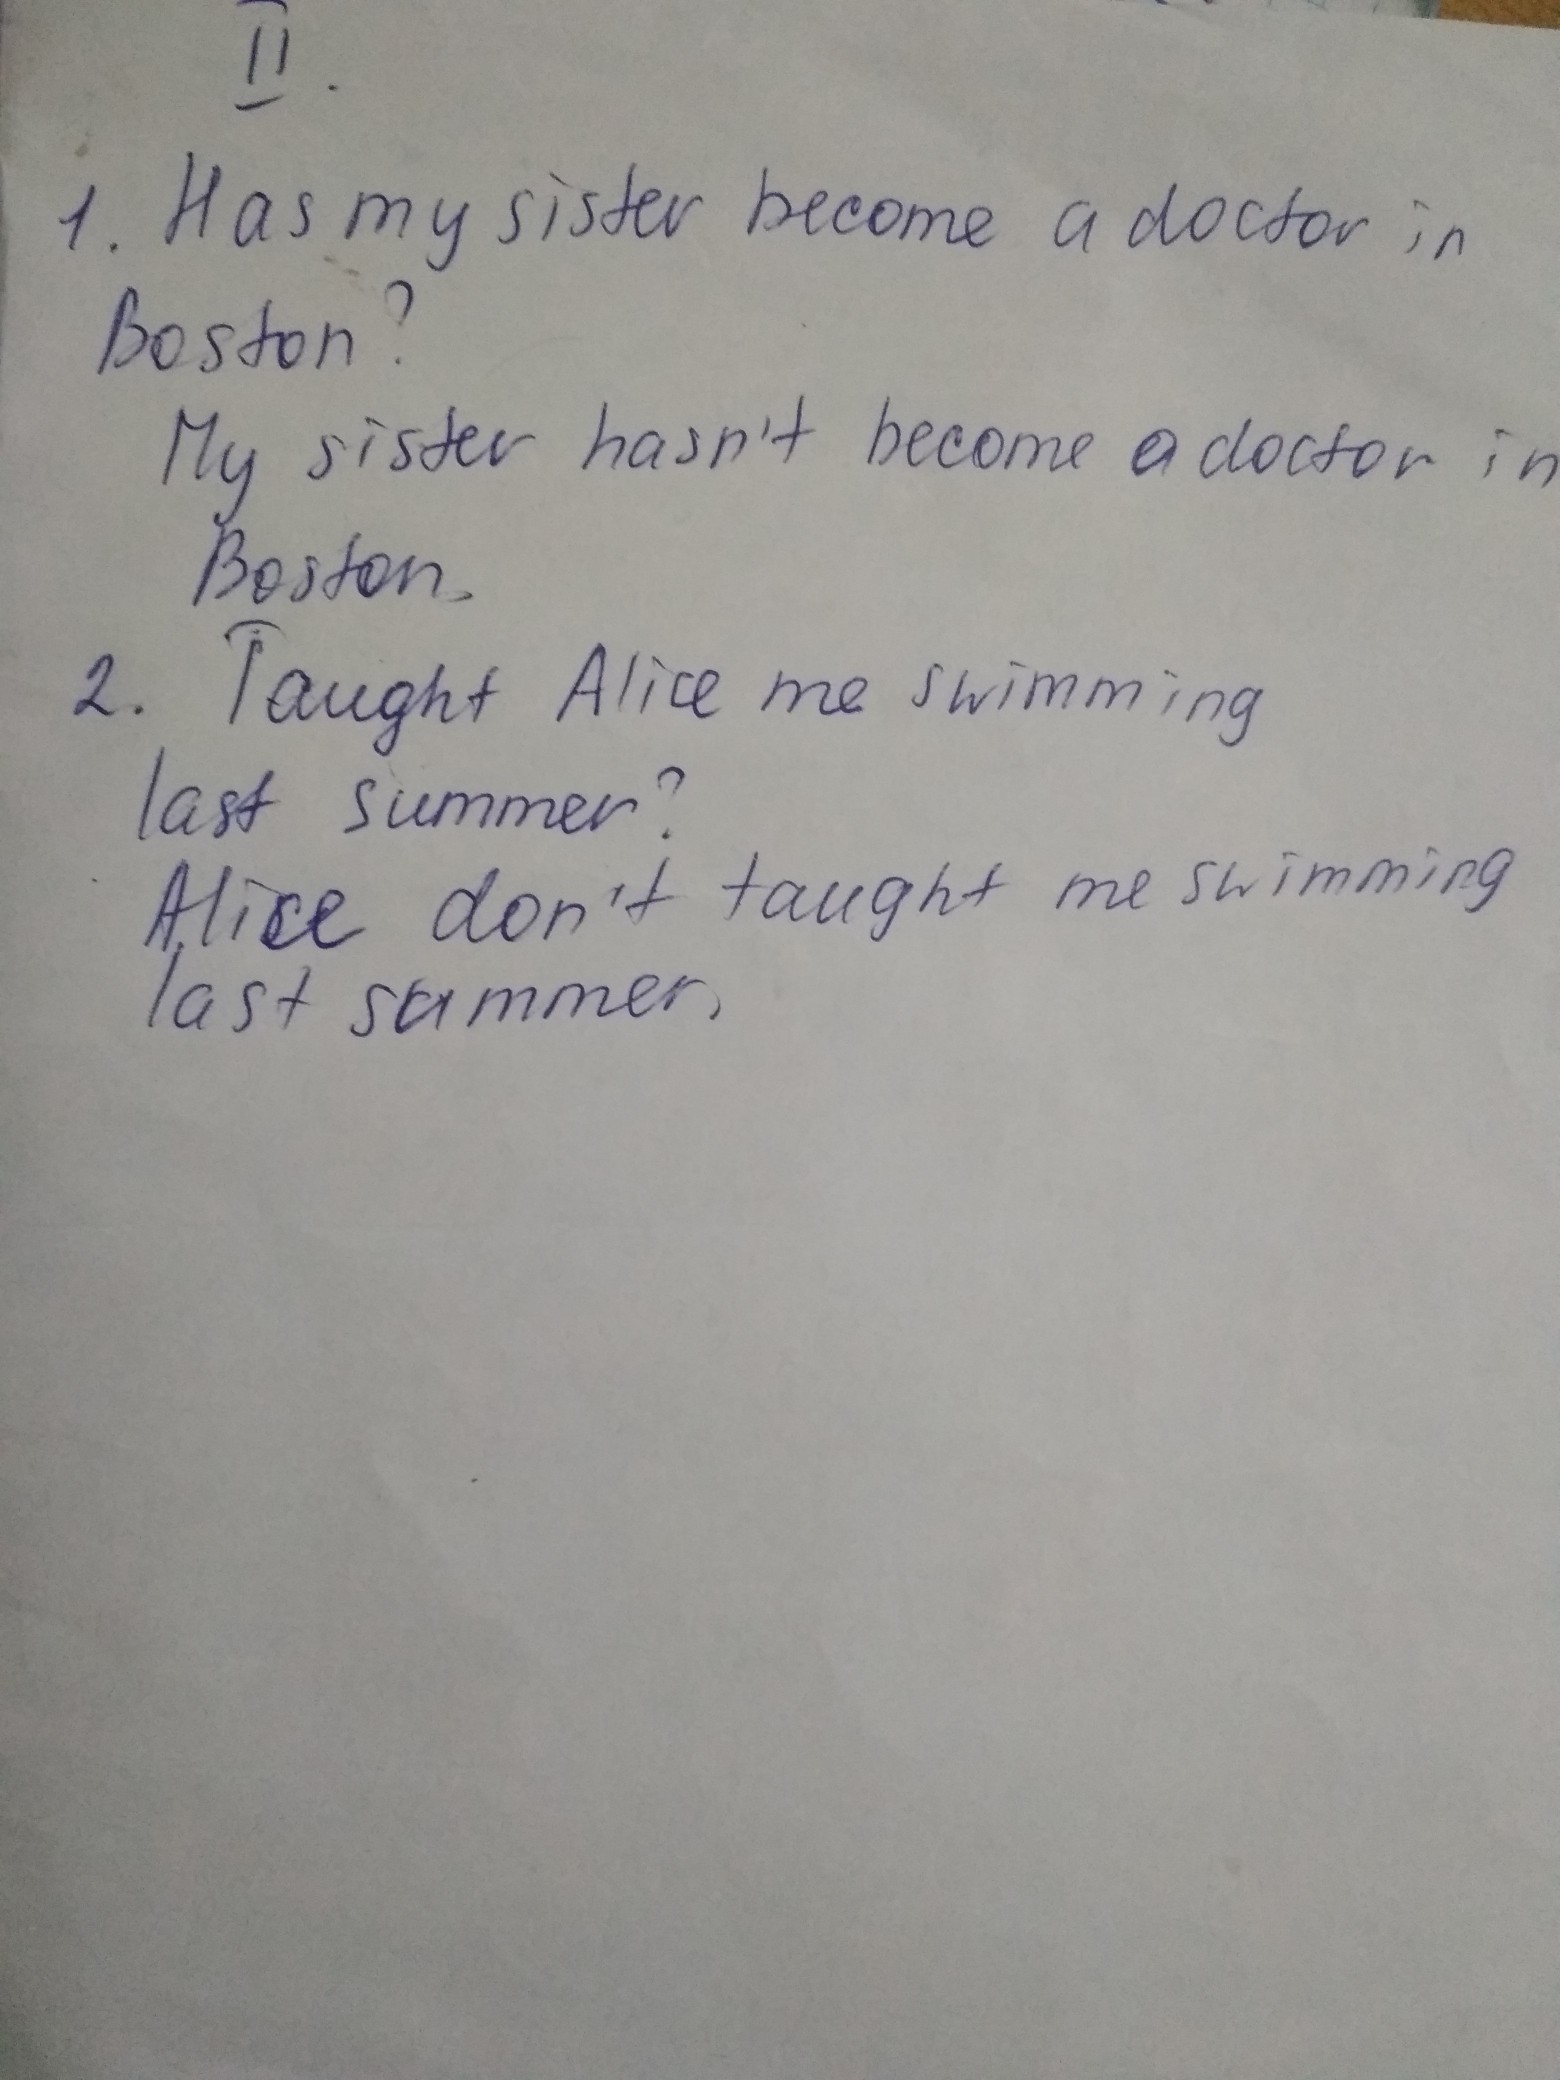 II.
1. Has my sister become a doctor in
Boston?
My sister hasn't become a doctor in
Boston.
2. Taught Alice me swimming
last summer?
Alice don't taught me swimming
last summer.